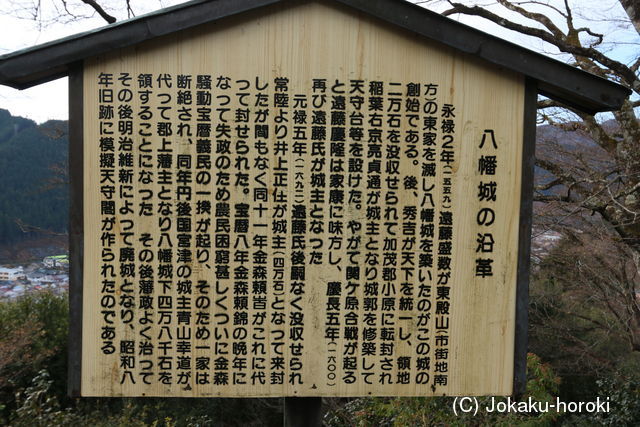 八幡城の沿革
永禄２年（一五五九）遠藤盛数が東殿山（市街地南
方）の東家を滅し八幡城を築いたのがこの城の
創始である。後、秀吉が天下を統一し、領地
二万石を没収せられて加茂郡小原に転封され
稲葉右京亮貞通が城主となり城郭を修築して
天守台等を設けた。やがて関ケ原合戦が起る
と遠藤慶隆は家康に味方し、慶長五年（一六〇〇）
再び遠藤氏が城主となつた
元禄五年（一六九二）遠藤氏後嗣なく没収せられ
常陸より井上正任が城主（四万石）となつて来封
したが間もなく同十一年金森頼旹がこれに代
つて封せられた。宝暦八年金森頼錦の晩年に
なつて失政のため農民困窮甚しくついに金森
騒動宝暦義民の一揆が起り、そのため一家は
断絶され、同年円後国宮津の城主青山幸道が
代つて郡上藩主となり八幡城下四万八千石を
領することになつた　その後藩政よく治つて
その後明治維新によって廃城となり、昭和八
年旧跡に模擬天守閣が作られたのである
(C) Jokaku-horoki